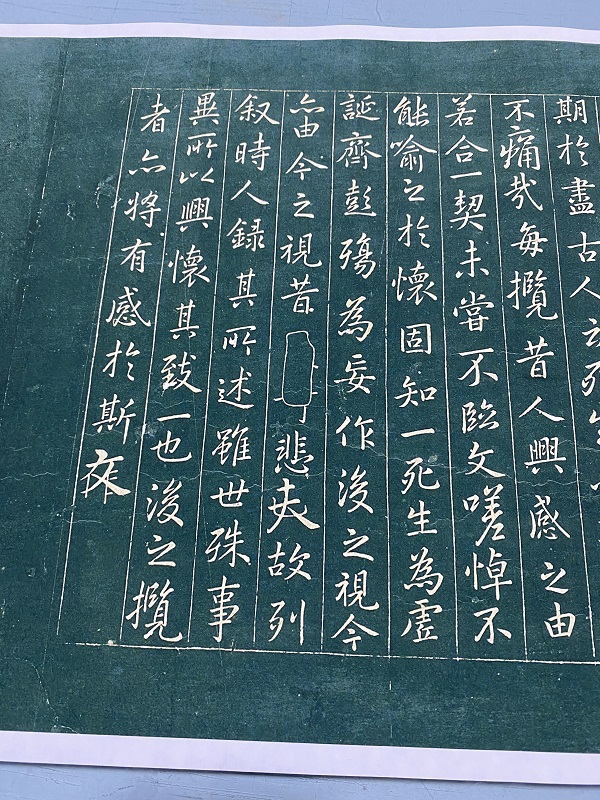 期於盡古人云死生
不痛哉每攬昔人興感之由
若合一契未嘗不臨文嗟悼不
能喻之於懷固知一死生為虛
誕齊彭殤為妄作後之視今
亦由今之視昔悲夫故列
叙時人録其所述雖世殊事
異所以興懷其致一也後之攬
者亦將有感於斯文